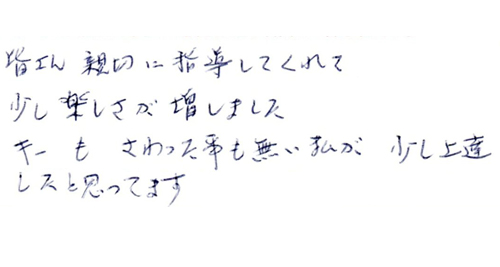 皆さん 親切に指導してくれて
少し楽しさが増しました
キーも さわった事も無い私が 少し上達
したと思ってます